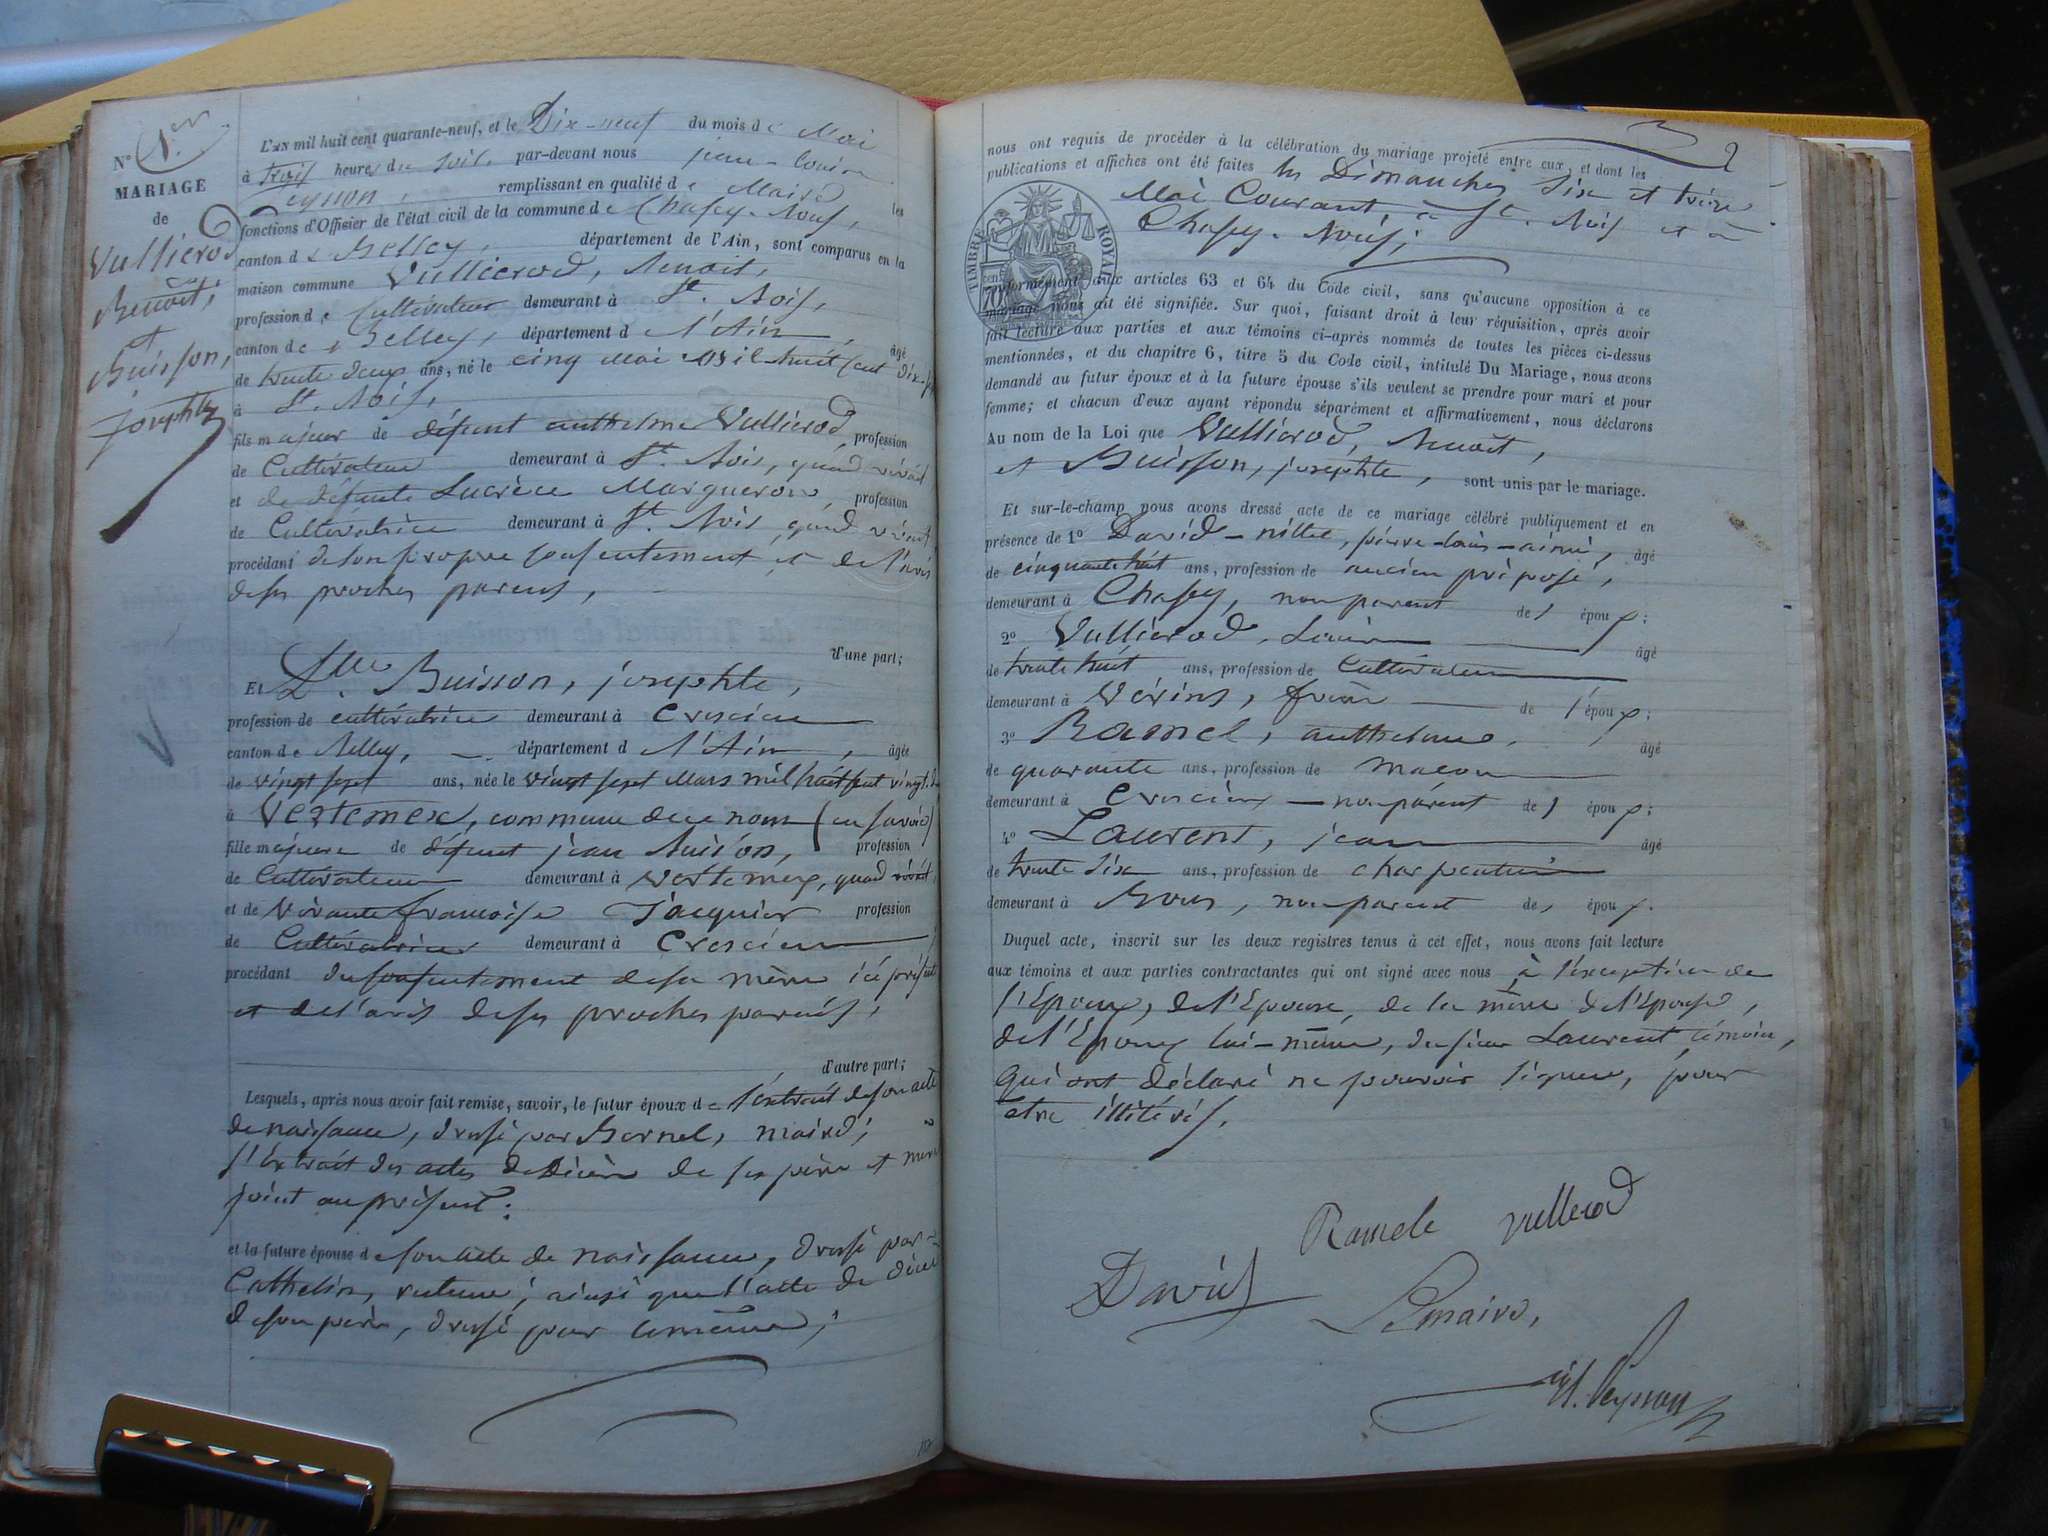 N° 1.er
MARIAGE
de
Vullierod
Benoît;
et
Buisson,
josephte
L'AN mil huit cent quarante-neuf, et le Dix-neuf du mois de Mai
à trois heures du soir, par-devant nous jean-louis
Peysson, remplissant en qualité de Maire les
fonctions d'Officier de l'état civil de la commune de Chasey-Bons,
canton de Belley, département de l'Ain, sont comparus en la
maison commune Vullierod, Benoit,
profession de Cultivateur demeurant à St. Bois,
canton de Belley, département de l'Ain, âgé
de trente deux ans, né le cinq Mai Mil huit Cent dix-sept
à St. Bois,
fils majeur de défunt anthelme Vullierod, profession
de Cultivateur demeurant à St. Bois, quand vivait
et de défunte Lucrèce Margueron, profession
de Cultivatrice demeurant à St. Bois, quand vivait
procédant de son propre Consentement et de l'avis
de ses proches parens,
d'une part;
Et Dlle. Buisson, josephte,
profession de cultivatrice demeurant à Crescieu
canton de Belley, département de l'Ain, âgée
de vingt sept ans, née le vingt sept Mars mil huit Cent vingt-deux
à Vertemex, commune de ce nom (en Savoie)
fille majeure de défunt jean Buisson, profession
de Cultivateur demeurant à Vertemex, quand vivait,
et de Vivante françoise Jacquier profession
de Cultivatrice demeurant à Crescieu
procédant du Consentement de sa mère ici présente
et de l'avis de ses proches parens,
d'autre part;
Lesquels, après nous avoir fait remise, savoir, le futur époux de l'extrait de son acte
de naissance, dressé par Bornel, maire;
l'extrait des actes de Décès de ses père et mère
joint au présent:
et la future épouse de son acte de naissance, dressé par
Cathelin, recteur; ainsi que l'acte de décès
de son père, dressé par le même;
2
nous ont requis de procéder à la célébration du mariage projeté entre eux, et dont les
publications et affiches ont été faites les Dimanches Six et treize
Mai Courant, à St. Bois et à
Chasey-Bons;
TIMBRE ROYAL
70 cent
conformément aux articles 63 et 64 du Code civil, sans qu'aucune opposition à ce
mariage nous ait été signifiée. Sur quoi, faisant droit à leur réquisition, après avoir
fait lecture aux parties et aux témoins ci-après nommés de toutes les pièces ci-dessus
mentionnées, et du chapitre 6, titre 5 du Code civil, intitulé Du Mariage, nous avons
demandé au futur époux et à la future épouse s'ils veulent se prendre pour mari et pour
femme; et chacun d'eux ayant répondu séparément et affirmativement, nous déclarons
Au nom de la Loi que Vullierod, Benoît,
et Buisson, josephte, sont unis par le mariage.
Et sur-le-champ nous avons dressé acte de ce mariage célébré publiquement et en
présence de 1° David-nillet, pierre-louis-aimé, âgé
de cinquante huit ans, profession de ancien préposé,
demeurant à Chasey, non parent de l'époux;
2° Vullierod, Louis âgé
de trente huit ans, profession de Cultivateur
demeurant à Vérins, frère de l'époux;
3° Ramel, anthelme, âgé
de quarante ans, profession de macon
demeurant à Crescieu non parent de l'époux;
4° Laurent, jean âgé
de trente Six ans, profession de charpentier
demeurant à Bons, non parent de l'époux.
Duquel acte, inscrit sur les deux registres tenus à cet effet, nous avons fait lecture
aux témoins et aux parties contractantes qui ont signé avec nous, à l'exception de
l'Epoux, de l'Epouse, de la mère de l'Epouse,
de l'Epoux lui-même, du sieur Laurent témoin,
qui ont déclaré ne pouvoir signer, pour
etre illitérés.
Ramele vullerod
David
Le maire,
jh. Peysson